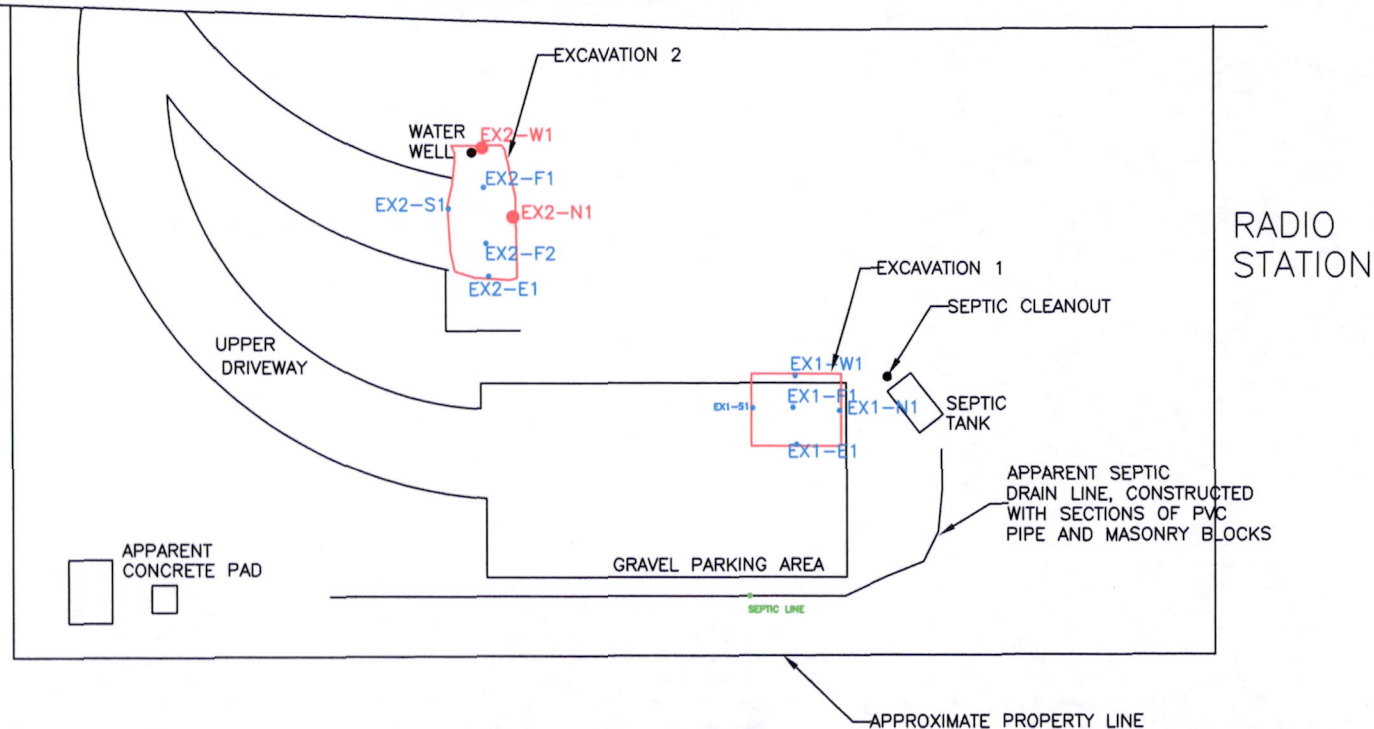 EXCAVATION 2
WATER
WELL
EX2-W1
EX2-F1
EX2-S1
EX2-N1
EX2-F2
EX2-E1
RADIO
STATION
EXCAVATION 1
SEPTIC CLEANOUT
UPPER
DRIVEWAY
EX1-W1
EX1-S1
EX1-F1
EX1-N1
SEPTIC
TANK
EX1-E1
APPARENT SEPTIC
DRAIN LINE, CONSTRUCTED
WITH SECTIONS OF PVC
PIPE AND MASONRY BLOCKS
APPARENT
CONCRETE PAD
GRAVEL PARKING AREA
SEPTIC LINE
APPROXIMATE PROPERTY LINE